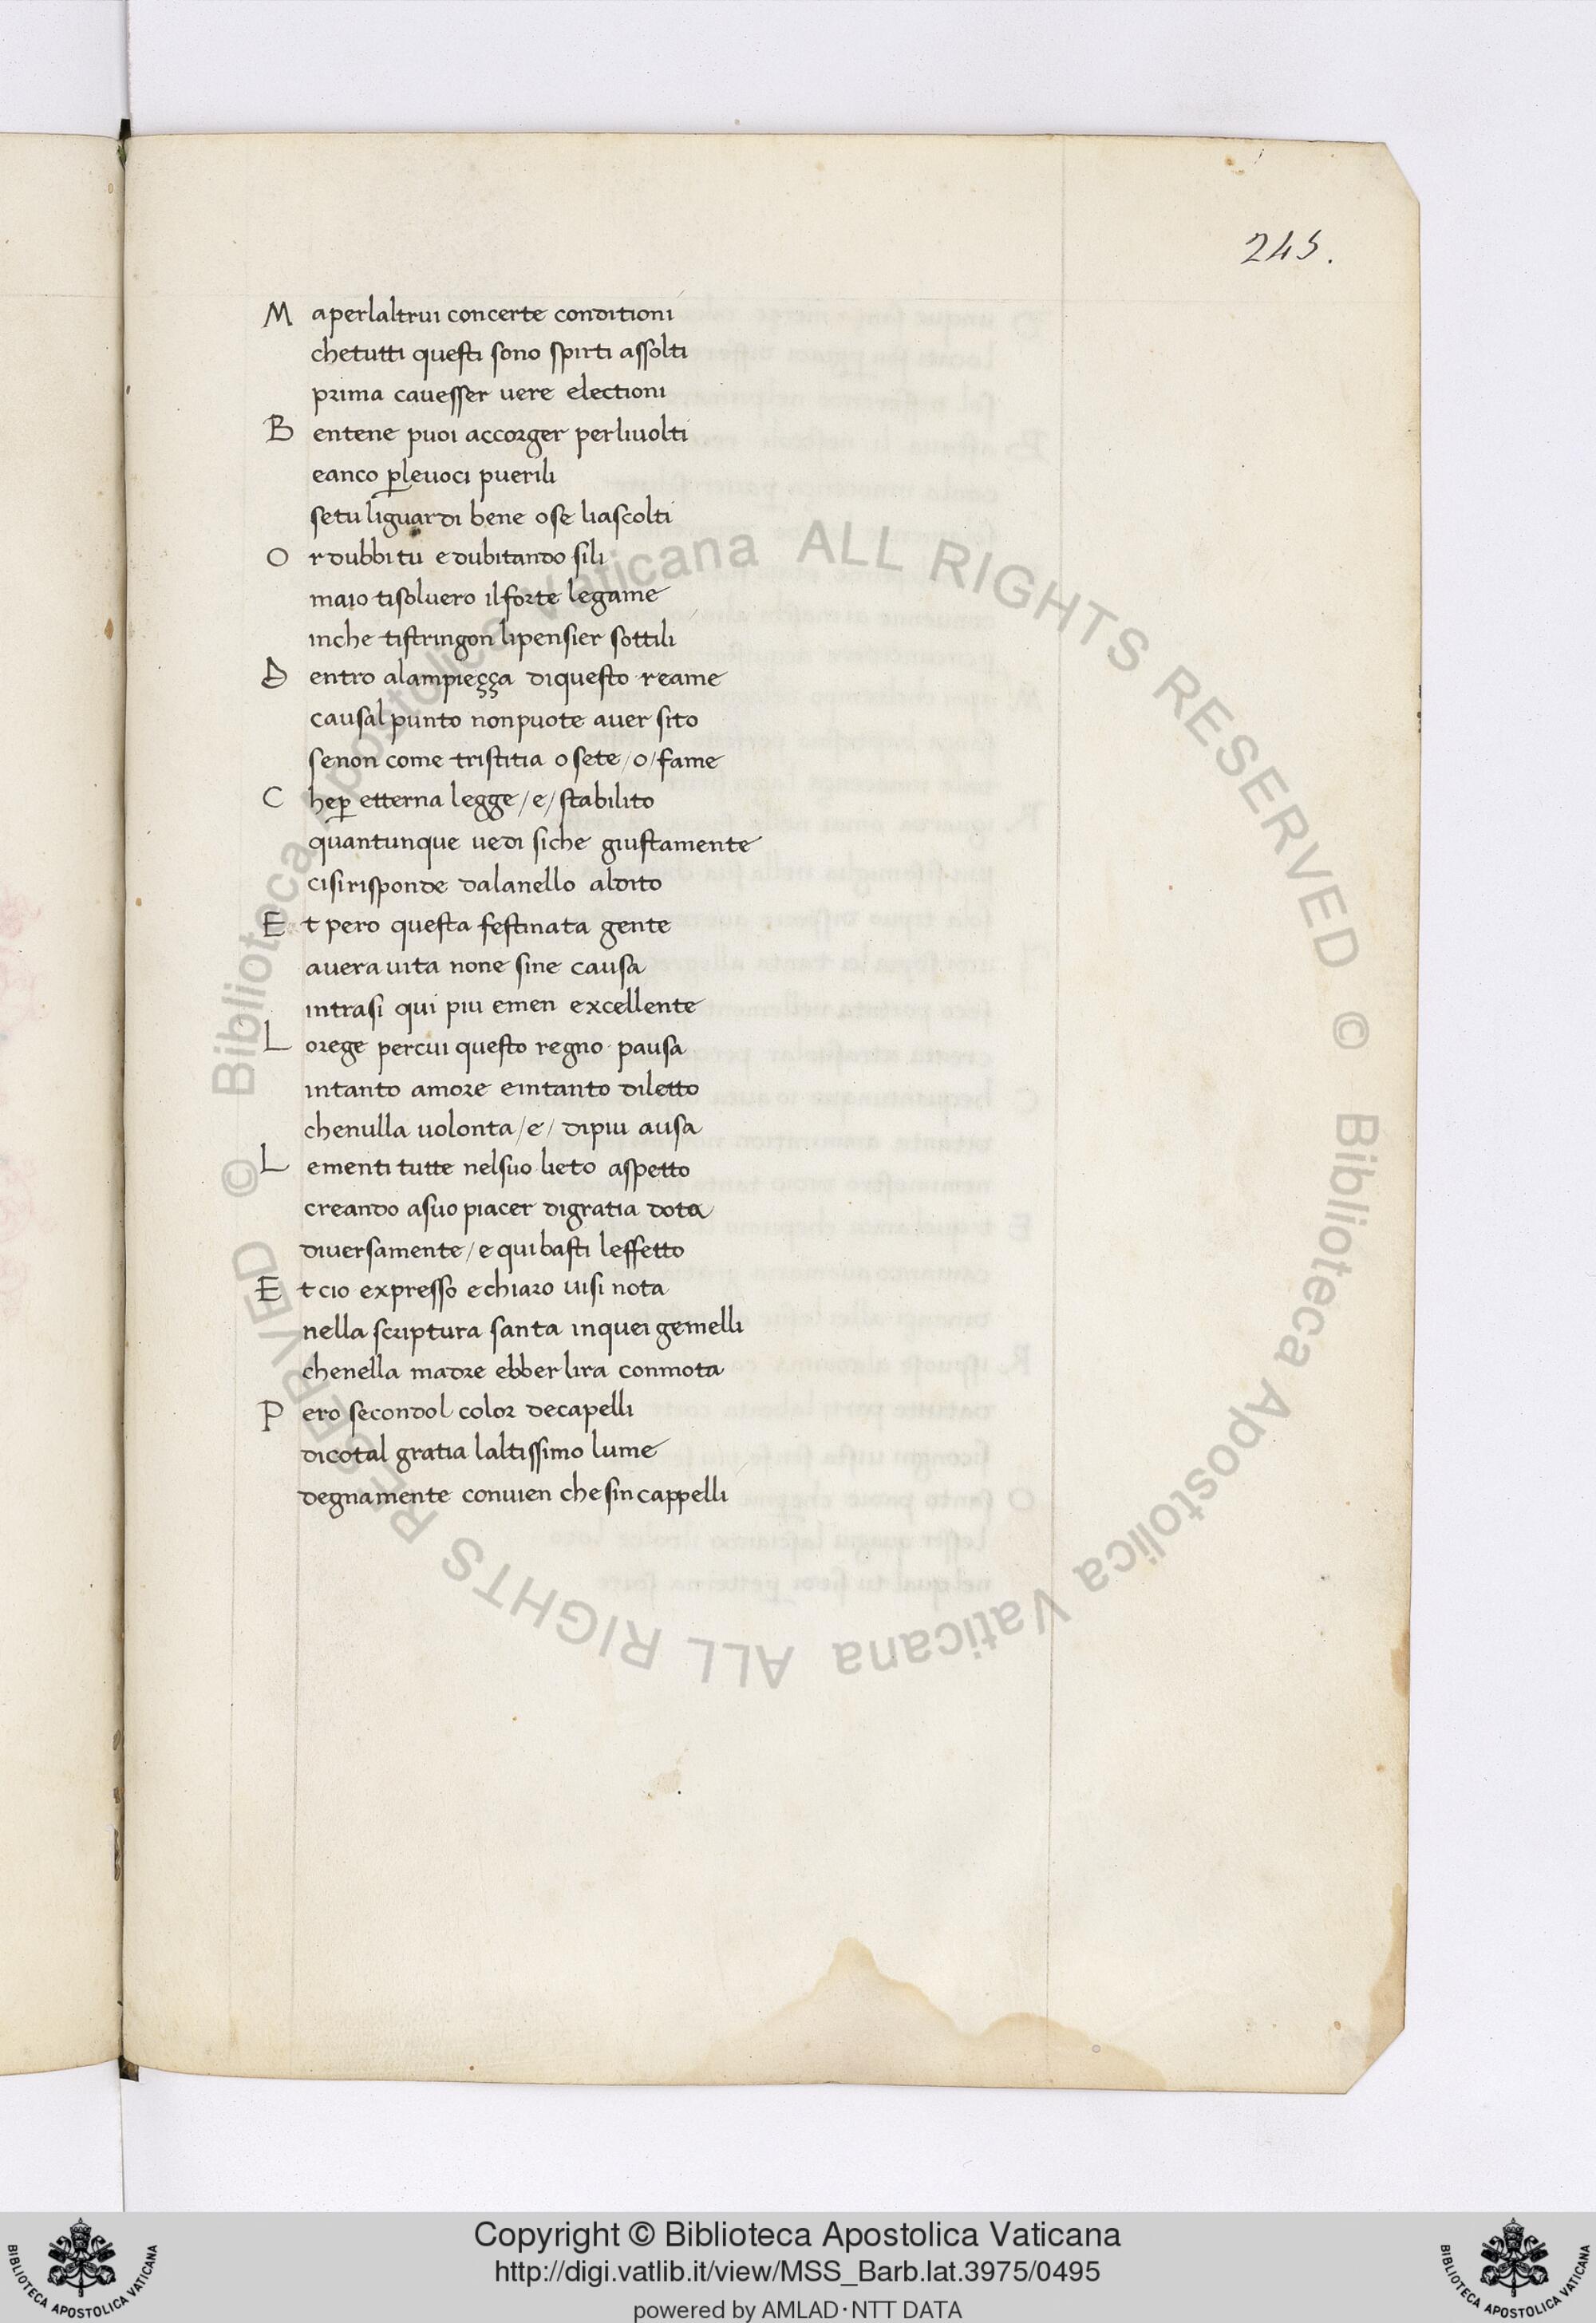 245.
M aperlaltrui concerte conditioni
chetutti questi sono spirti assolti
prima cavesser vere electioni
B entene puoi accorger perlivolti
eanco ꝑlevoci puerili
setu liguardi bene ose liascolti
O r dubbi tu e dubitando sili
maio tisolvero ilforte legame
inche tistringon lipensier sottili
D entro alampieçça diquesto reame
causal punto nonpuote aver sito
senon come tristitia o sete/o/fame
C heꝑ etterna legge/e/stabilito
quantunque vedi siche giustamente
cisirisponde dalanello aldito
E t pero questa festinata gente
avera vita none sine causa
intrasi qui piu emen excellente
L orege percui questo regno pausa
intanto amore eintanto diletto
chenulla volonta/e/ dipiu ausa
L ementi tutte nelsuo lieto aspetto
creando asuo piacer digratia dota
diversamente/e qui basti leffetto
E t cio expresso echiaro visi nota
nella scriptura santa inquei gemelli
chenella madre ebber lira conmota
P ero secondol color decapelli
dicotal gratia laltissimo lume
degnamente convien che sincappelli
© Biblioteca Apostolica Vaticana ALL RIGHTS RESERVED
© Biblioteca Apostolica Vaticana ALL RIGHTS RESERVED
BIBLIOTECA APOSTOLICA VATICANA
Copyright © Biblioteca Apostolica Vaticana
http://digi.vatlib.it/view/MSS_Barb.lat.3975/0495
powered by AMLAD·NTT DATA
BIBLIOTECA APOSTOLICA VATICANA